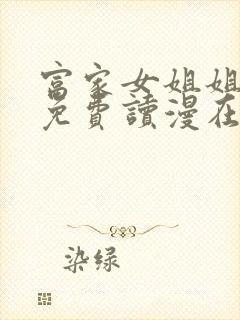 富家女姐姐
免費讀漫在
染绿